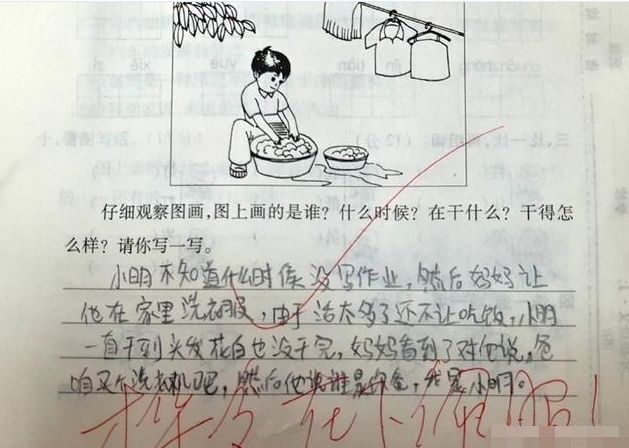 仔细观察图画,图上画的是谁?什么时候?在干什么?干得怎
么样?请你写一写。
小明不知道什么时侯没写作业,然后妈妈让
他在家里洗衣服,由于活太多了还不让吃饭,小明
一直干到头发花白也没干完,妈妈看到了对他说,爸
咱买个洗衣机吧,然后他说谁是你爸,我是小明。
三、比一比,再组词。(12分)